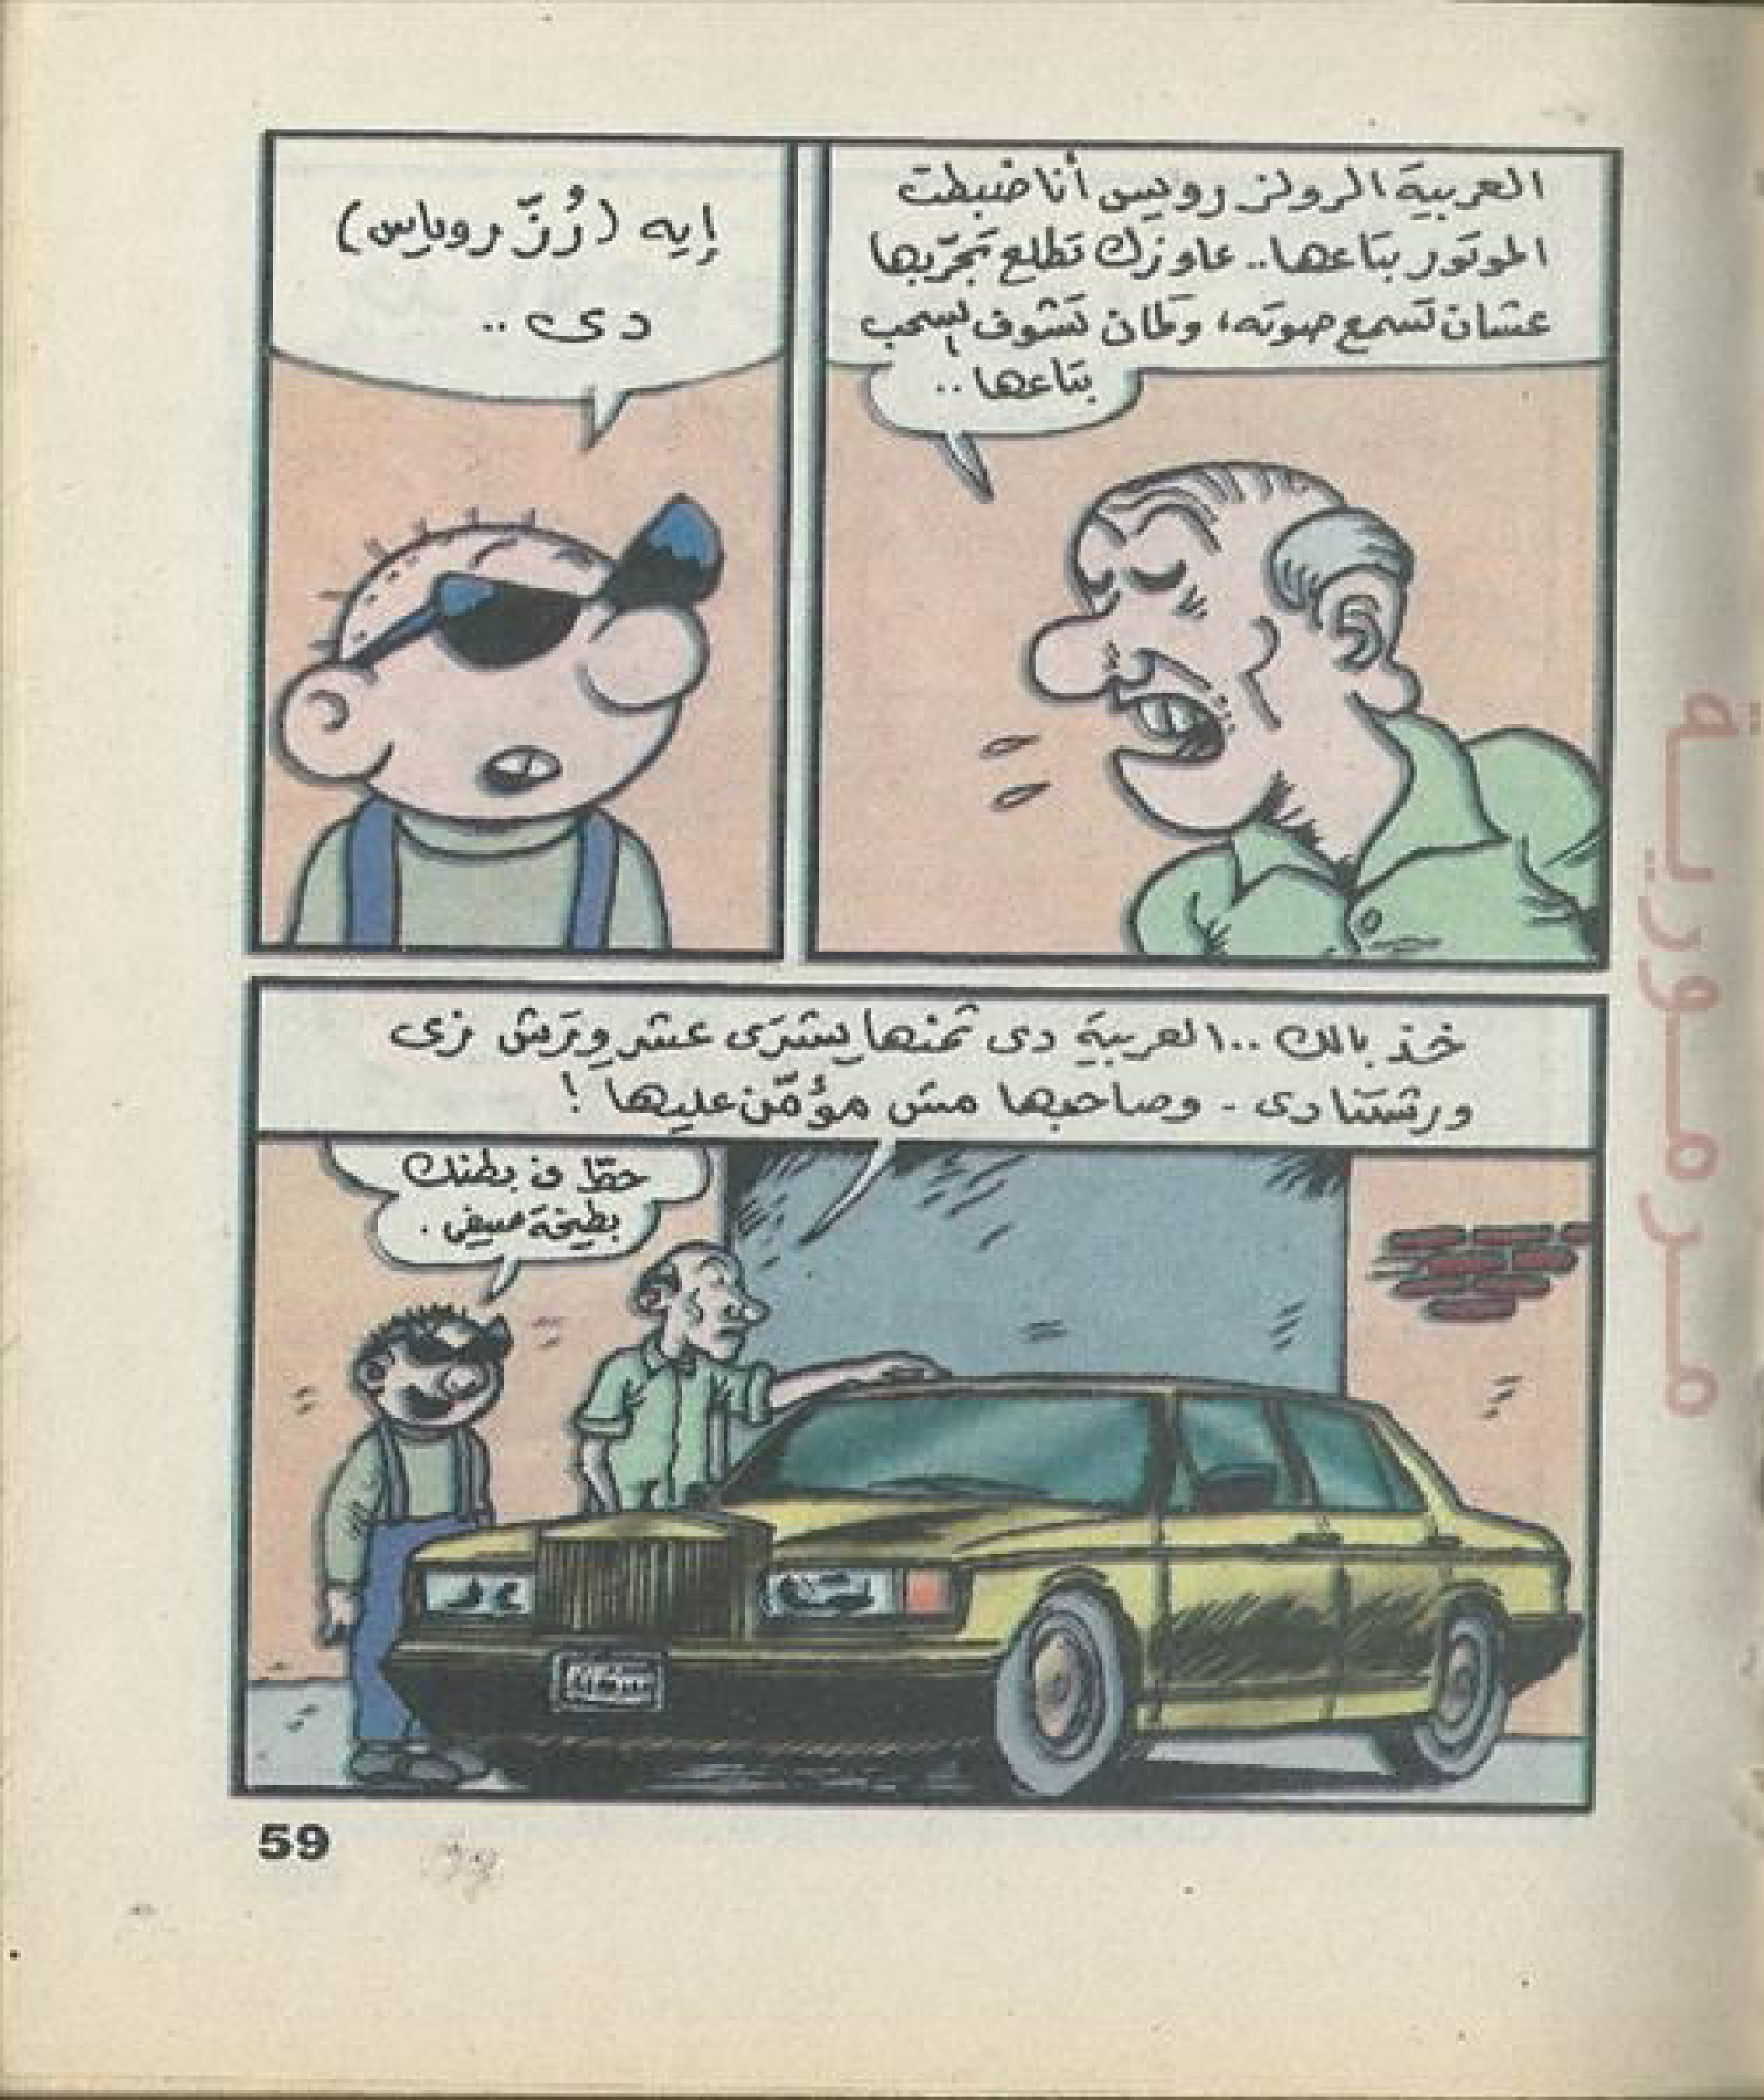 العربية الرولز رويس أنا ضبطت
الموتور بتاعها.. عاوزك تطلع تجرّبها
عشان تسمع صوته، وكمان تشوف السحب
بتاعها..
إيه (رُزّ روياس)
دى ..
خذ بالك ..العربية دى ثمنها يشترى عشر ورش زى
ورشتنا دى - وصاحبها مش مؤمّن عليها !
حط فى بطنك
بطيخة صيفى .
59
مرمورية